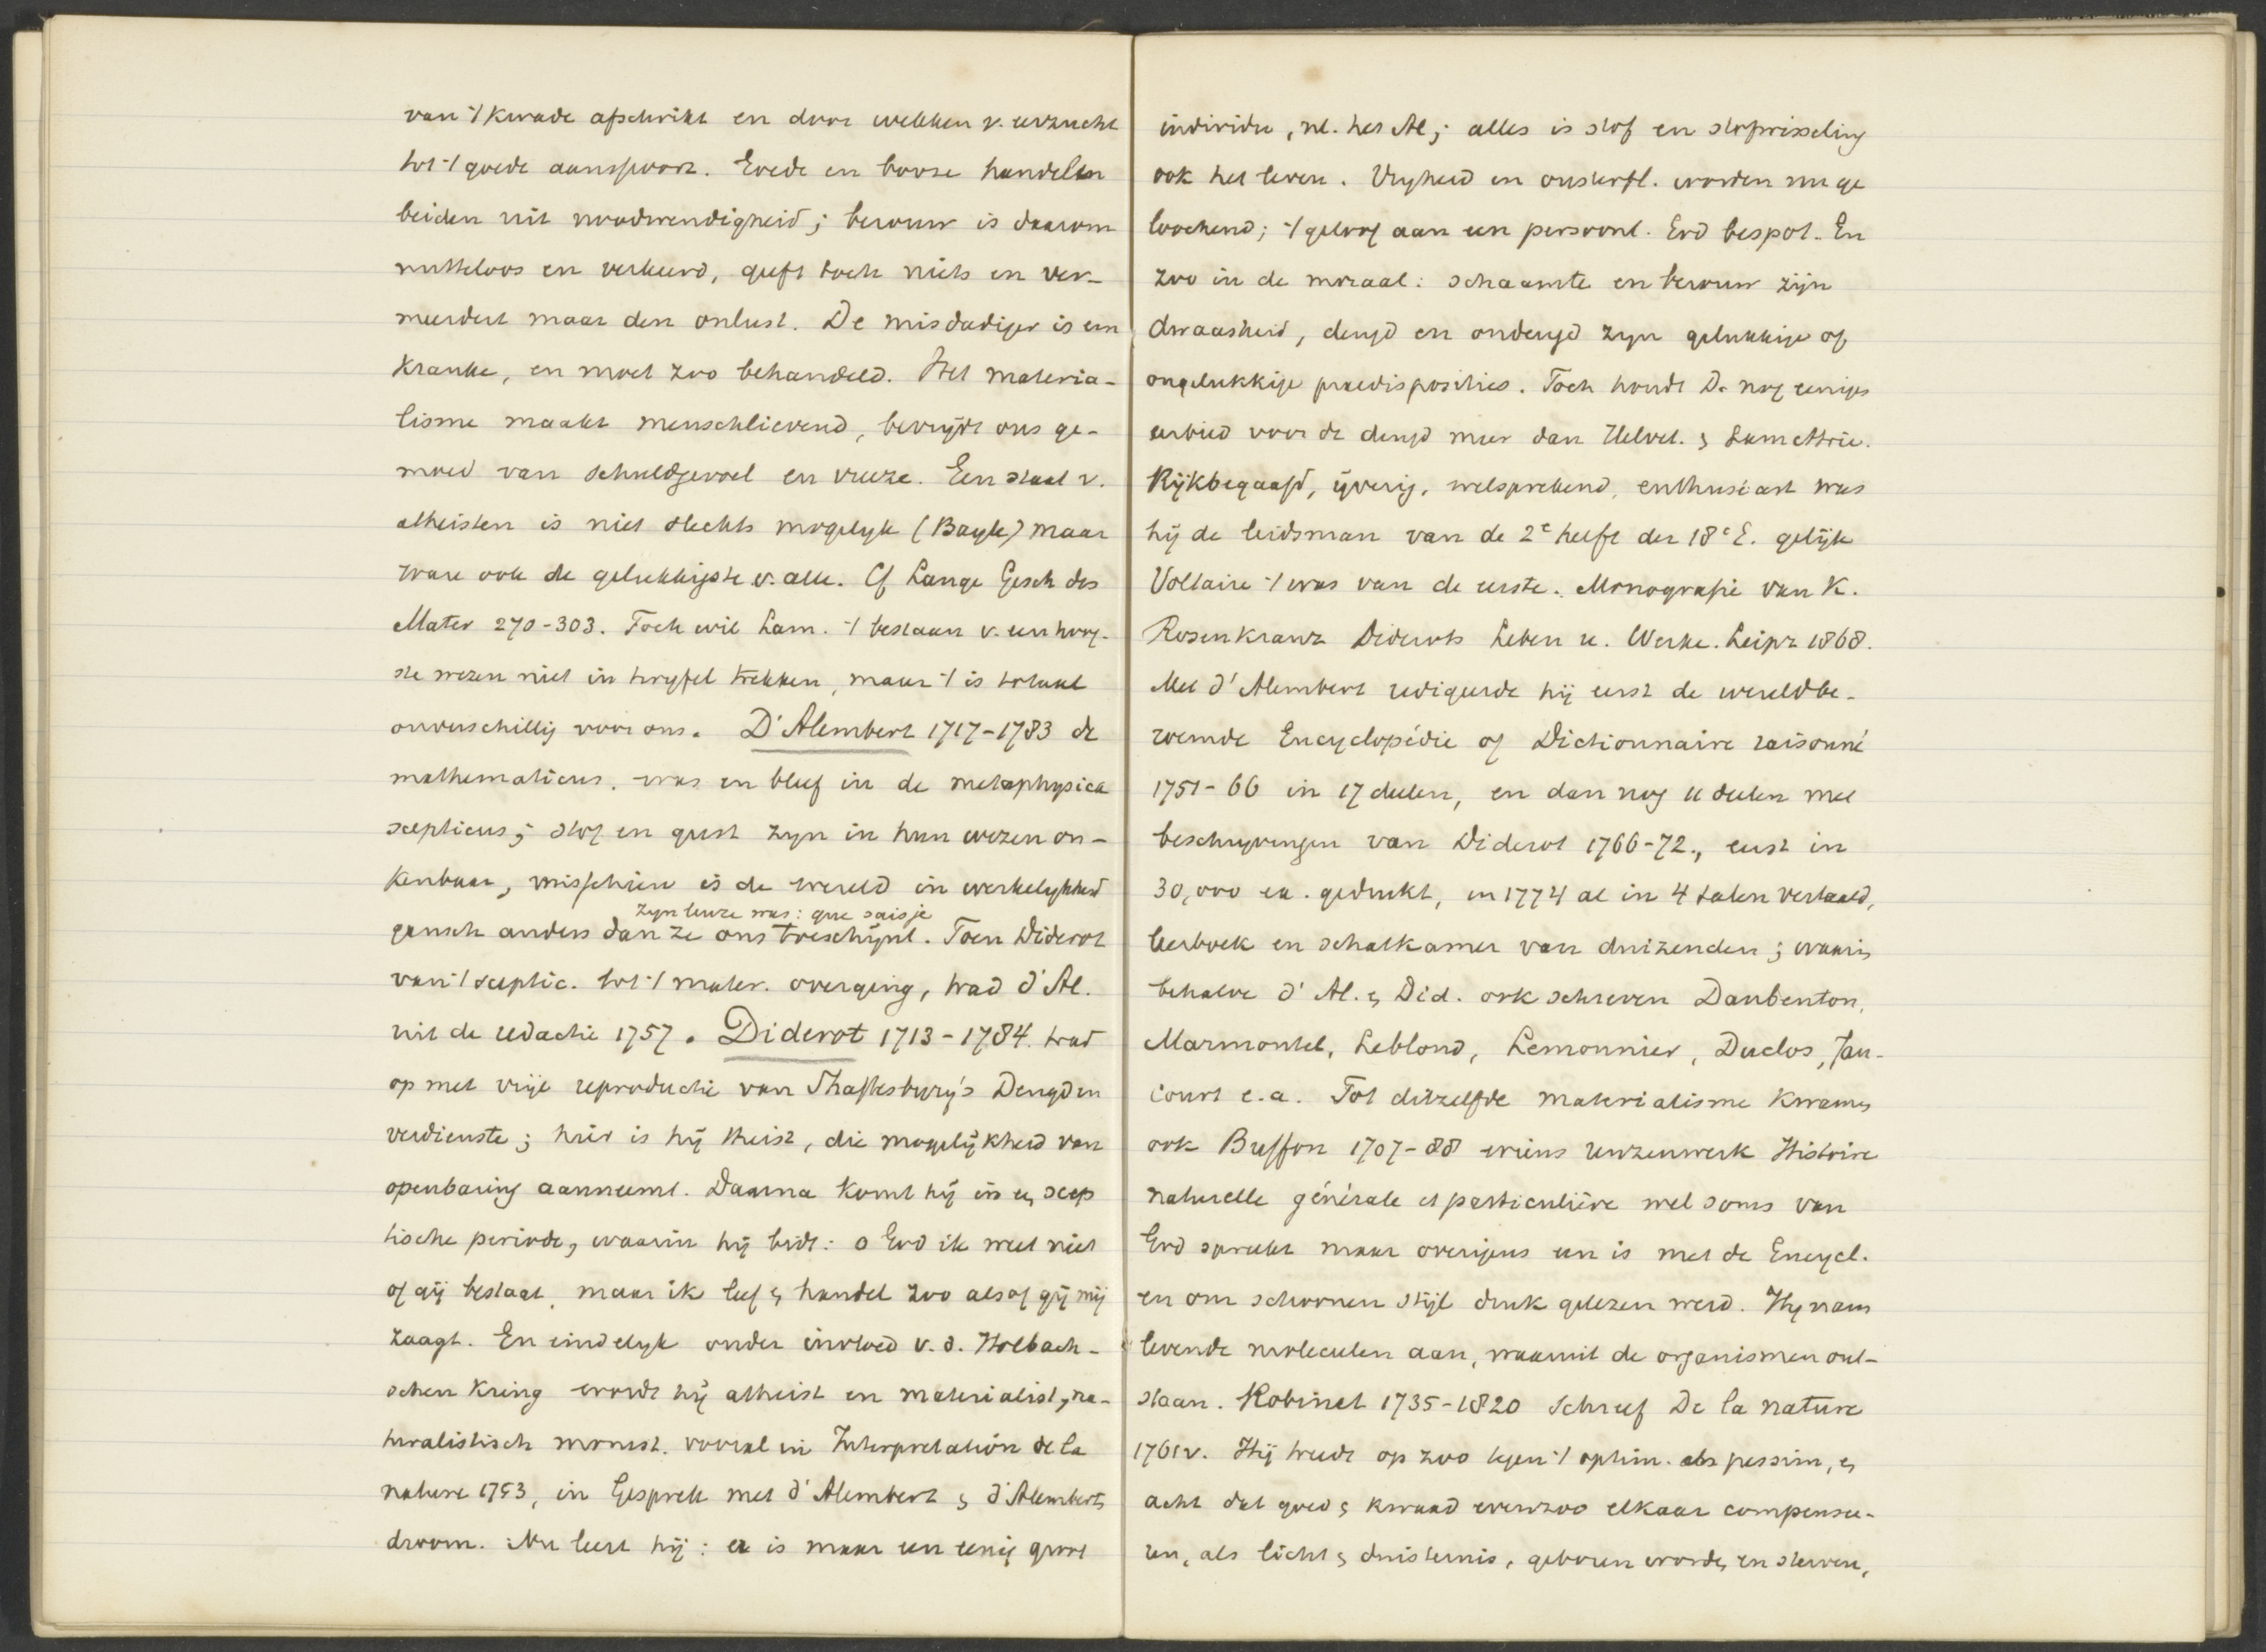 van 't kwade afschrikt en door wekken v. eerzucht
tot 't goede aanspoort. Goede en booze handelen
beiden uit noodwendigheid; berouw is daarom
nutteloos en verkeerd, geeft toch niets en ver-
meerdert maar den onlust. De misdadiger is een
kranke, en moet zoo behandeld. Het materia-
lisme maakt menschlievend, bevrijdt ons ge-
moed van schuldgevoel en vreeze. Een staat v.
atheisten is niet slechts mogelyk (Bayle) maar
ware ook de gelukkigste v. alle. Cf Lange Gesch des
Mater 270-303. Toch wil Lam. 't bestaan v. een hoog-
ste wezen niet in twyfel trekken, maar 't is totaal
onverschillig voor ons. D'Alembert 1717-1783 de
mathematicus, was en bleef in de metaphysica
scepticus; stof en geest zyn in hun wezen on-
kenbaar, misschien is de wereld in werkelykheid
zyn leuze was: que sais je
gansch anders dan ze ons toeschijnt. Toen Diderot
van 't sceptic. tot 't mater. overging, trad d'Al.
uit de redactie 1757. Diderot 1713-1784. trad
op met vrije reproductie van Shaftesbury's Deugd en
verdienste; hier is hij theist, die mogelijkheid van
openbaring aanneemt. Daarna komt hij in een scep
tische periode, waarin hij bidt: o God ik weet niet
of gij bestaat, maar ik leef & handel zoo alsof gij mij
zaagt. En eindelyk onder invloed v. d. Holbach-
schen kring wordt hij atheist en materialist, na-
turalistisch monist. vooral in Interprétation de la
nature 1753, in Gesprek met d'Alembert & d'Alemberts
droom. Nu leert hij: er is maar een eenig groot
individu, nl. het Al; alles is stof en stofwisseling
ook het leven. Vryheid en onsterfl. worden nu ge
loochend; 't geloof aan een persoonl. God bespot. En
zoo in de moraal: schaamte en berouw zijn
dwaasheid, deugd en ondeugd zyn gelukkige of
ongelukkige praedisposities. Toch houdt D. nog eenigen
eerbied voor de deugd meer dan Helvet. & Lamettrie.
Rijkbegaafd, ijverig, welsprekend, enthusiast was
hij de leidsman van de 2e helft der 18e E. gelijk
Voltaire 't was van de eerste. Monografie van K.
Rosenkranz Diderots Leben u. Werke. Leipz 1868.
Met d'Alembert redigeerde hij eerst de wereldbe-
roemde Encyclopédie of Dictionnaire raisonné
1751-66 in 17 deelen, en dan nog 11 deelen met
beschryvingen van Diderot 1766-72., eerst in
30,000 ex. gedrukt, in 1774 al in 4 talen vertaald,
leerboek en schatkamer van duizenden; waarin
behalve d'Al. & Did. ook schreven Daubenton,
Marmontel, Leblond, Lemonnier, Duclos, Jau-
court e.a. Tot ditzelfde materialisme kwamen
ook Buffon 1707-88 wiens reuzenwerk Histoire
naturelle générale et particulière wel soms van
God spreekt maar overigens een is met de Encycl.
en om schoonen stijl druk gelezen werd. Hij nam
levende moleculen aan, waaruit de organismen ont-
staan. Robinet 1735-1820 schreef De la nature
1761v. Hij treedt op zoo tegen 't optim. als pessim, en
acht dat goed & kwaad evenzoo elkaar compensee-
ren, als licht & duisternis, geboren worden en sterven,